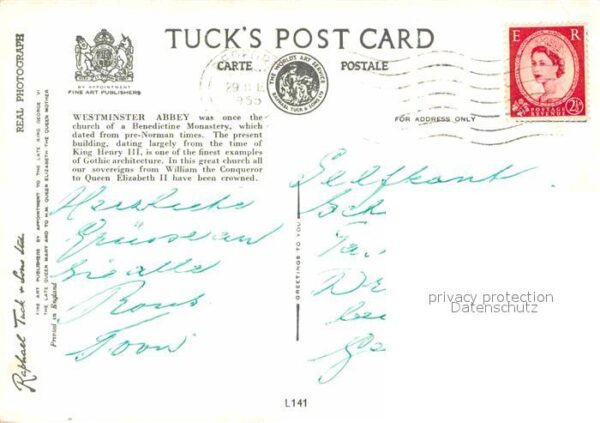 TUCK'S POST CARD
CARTE POSTALE
BY APPOINTMENT
FINE ART PUBLISHERS
THE WORLD'S ART SERVICE
RAPHAEL TUCK & SONS LTD
E R
2½d
POSTAGE
REVENUE
1955
FOR ADDRESS ONLY
WESTMINSTER ABBEY was once the
church of a Benedictine Monastery, which
dated from pre-Norman times. The present
building, dating largely from the time of
King Henry III, is one of the finest examples
of Gothic architecture. In this great church all
our sovereigns from William the Conqueror
to Queen Elizabeth II have been crowned.
Herzliche
Grüsse an
Sie alle
Toon
Selfkant
GREETINGS TO YOU
privacy protection
Datenschutz
REAL PHOTOGRAPH
Raphael Tuck & Sons Ltd.
FINE ART PUBLISHERS BY APPOINTMENT TO THE LATE KING GEORGE VI
THE LATE QUEEN MARY AND TO H.M. QUEEN ELIZABETH THE QUEEN MOTHER
Printed in England
L141